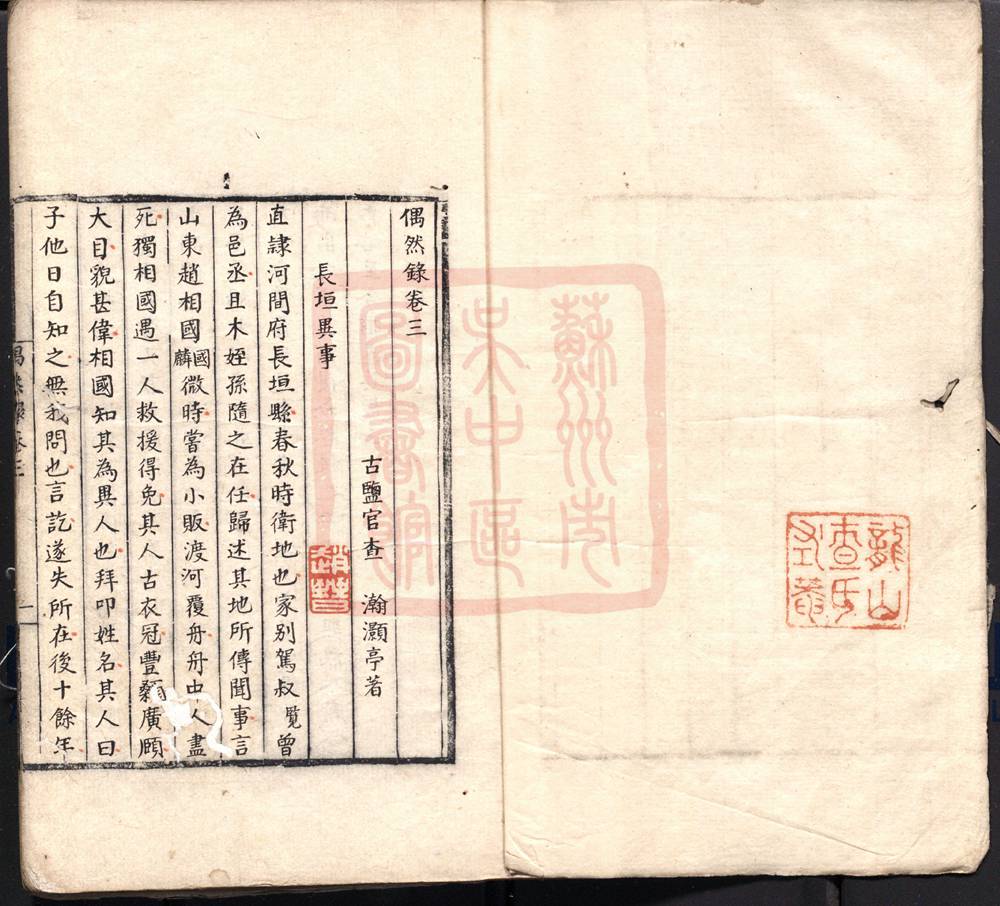 龍山
查氏
蘇州市
吳中區
圖書館
偶然錄卷三
古鹽官查 瀚灝亭著
長垣異事
直隷河間府長垣縣春秋時衛地也家别駕叔覧曾
為邑丞且木姪孫隨之在任歸述其地所傳聞事言
山東趙相國國麟微時嘗為小販渡河覆舟舟中人盡
死獨相國遇一人救援得免其人古衣冠豐顙廣頤
大目貌甚偉相國知其為異人也拜叩姓名其人曰
子他日自知之無我問也言訖遂失所在後十餘年
偶然錄卷三
一